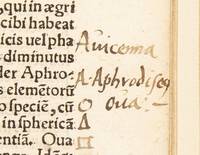 , qui in ægri
cibi habeat
icis uel pha
diminutus
der Aphro-
s elemētorū
o speciē, cū
in sphericā
entiā. Oua
Auicenna
A. Aphrodiseq
Oua: